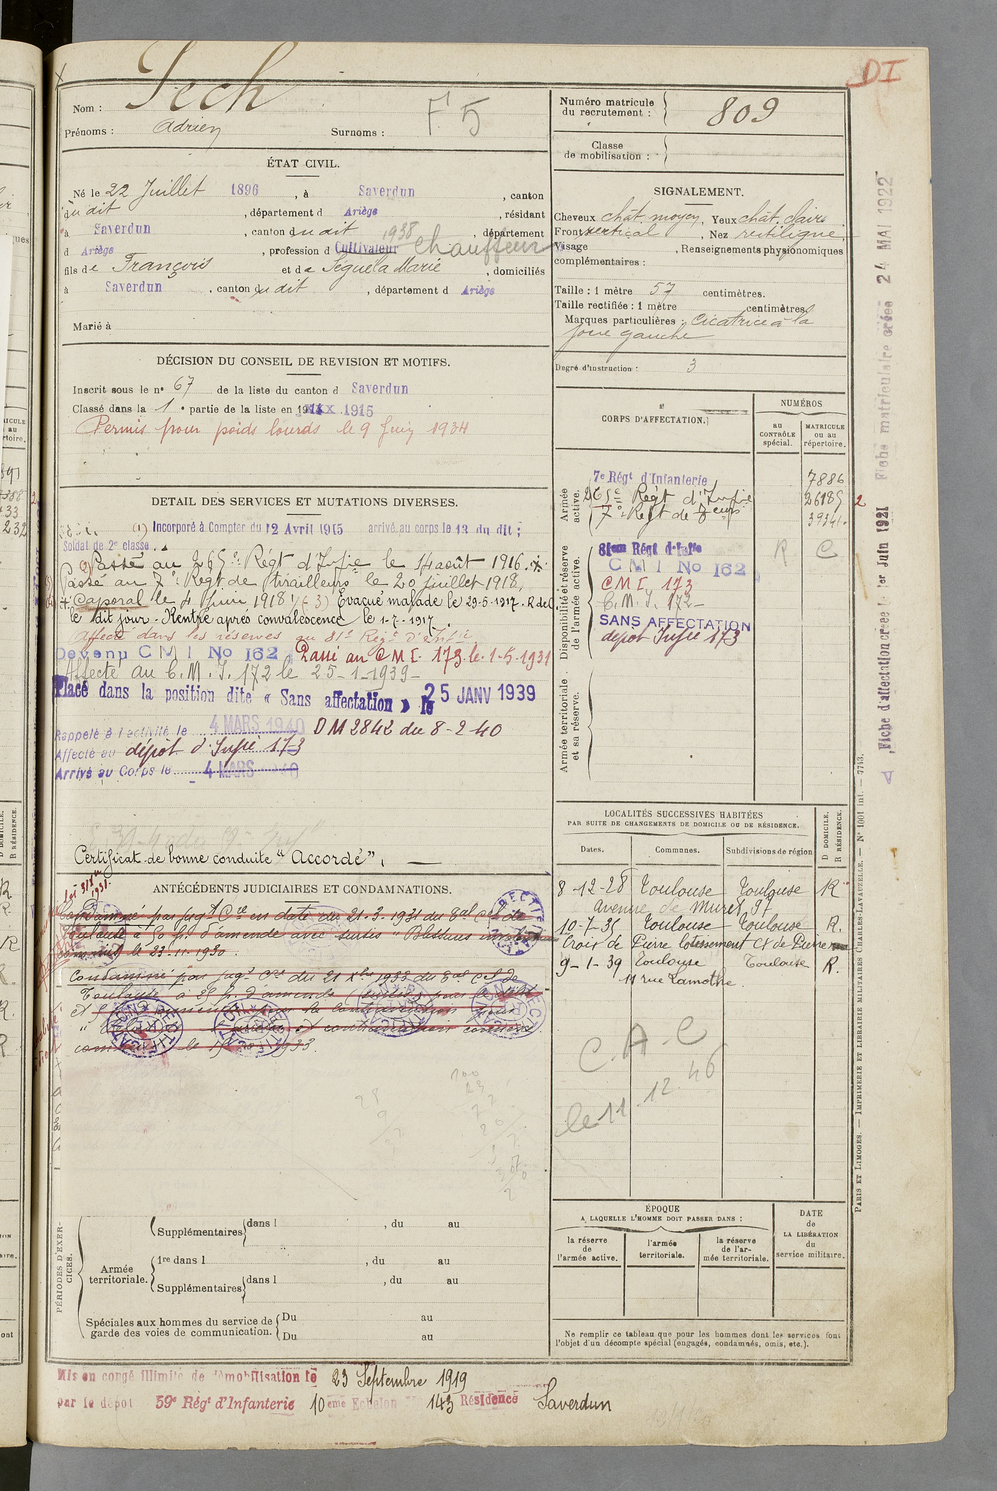 Nom : Pech
Prénoms : Adrien Surnoms : F 5
ÉTAT CIVIL.
Né le 22 Juillet 1896, à Saverdun, canton
du dit, département d Ariège, résidant
à Saverdun, canton du dit 1938, département
d Ariège, profession d Cultivateur chauffeur
fils de François et de Séguela Marie, domiciliés
à Saverdun, canton du dit, département d Ariège
Marié à
DÉCISION DU CONSEIL DE REVISION ET MOTIFS.
Inscrit sous le n° 67 de la liste du canton d Saverdun
Classé dans la 1e partie de la liste en 1915
Permis pour poids lourds le 9 Juin 1934
DETAIL DES SERVICES ET MUTATIONS DIVERSES.
(1) Incorporé à Compter du 12 Avril 1915 arrivé au corps le 13 du dit ;
Soldat de 2e classe.
Passé au 265e Régt d'Infie le 14 août 1916.
Passé au 7e Régt de tirailleurs le 20 juillet 1918,
Caporal le 4 Juin 1918 (3) Evacué malade le 29-5-1917 - R de
le dit jour. Rentré après convalescence le 1-7-1917.
Affecté dans les réserves au 81e Régt d'Infie
Devenu C M I No 162 Passé au C M I 173 le 1-5-1931
Affecté au C. M. I. 172 le 25-1-1939-
Placé dans la position dite « Sans affectation » le 25 JANV 1939
Rappelé à l'activité le 4 MARS 1940 DM 2842 du 8-2-40
Affecté au dépôt d'Infie 173
Arrivé au Corps le 4 MARS 1940
Certificat de bonne conduite "Accordé",
ANTÉCÉDENTS JUDICIAIRES ET CONDAMNATIONS.
Condamné par jugt Cel en date du 21-3-1931 du Bal Cel de
Toulouse à 50 fr d'amende avec sursis "Blessures
le 23-11-1930.
Condamné par jugt Cel du 21 1933 du Bal Cel de
Toulouse à 25 fr d'amende
et contravention
le 1933.
RECTIFICATION
PÉRIODES D'EXERCICES.
Supplémentaires dans l , du au
Armée territoriale.
1re dans l , du au
Supplémentaires dans l , du au
Spéciales aux hommes du service de garde des voies de communication. Du au
Du au
Mis en congé illimité de démobilisation le 23 Septembre 1919
par le dépôt 59e Régt d'Infanterie 10eme Echelon 143 Résidence Saverdun
DI
Numéro matricule du recrutement : 809
Classe de mobilisation :
SIGNALEMENT.
Cheveux chât. moyen, Yeux chât. clairs
Front vertical, Nez rectiligne
Visage , Renseignements physionomiques
complémentaires :
Taille : 1 mètre 57 centimètres.
Taille rectifiée : 1 mètre centimètres.
Marques particulières : Cicatrice à la
joue gauche
Degré d'instruction : 3
CORPS D'AFFECTATION.
NUMÉROS
AU CONTRÔLE spécial.
MATRICULE ou au répertoire.
Armée active.
7e Régt d'Infanterie 7886
265e Régt d'Infie 26185
7e Régt de Tirurs 39341
Disponibilité et réserve de l'armée active.
81eme Régt d'Infie R C
C M I No 162
C M I. 173
C. M. I. 172-
SANS AFFECTATION
dépôt Infie 173
Armée territoriale et sa réserve.
LOCALITÉS SUCCESSIVES HABITÉES
PAR SUITE DE CHANGEMENTS DE DOMICILE OU DE RÉSIDENCE.
Dates. Communes. Subdivisions de région
D DOMICILE.
R RÉSIDENCE.
8-12-28 Toulouse Toulouse R
Avenue de Muret, 97
10-7-35 Toulouse Toulouse R.
Croix de Pierre Lotissement Cx de Pierre
9-1-39 Toulouse Toulouse R.
11 rue Lamothe.
C. A. C
le 11. 12. 46
ÉPOQUE
A LAQUELLE L'HOMME DOIT PASSER DANS :
la réserve de l'armée active.
l'armée territoriale.
la réserve de l'armée territoriale.
DATE de LA LIBÉRATION du service militaire.
Ne remplir ce tableau que pour les hommes dont les services font
l'objet d'un décompte spécial (engagés, condamnés, omis, etc.).
PARIS ET LIMOGES. — IMPRIMERIE ET LIBRAIRIE MILITAIRES CHARLES-LAVAUZELLE. — N° 1001 int. — 7743.
Fiche d'affectation créée le 1er Juin 1921
Fiche matriculaire créée 24 MAI 1922